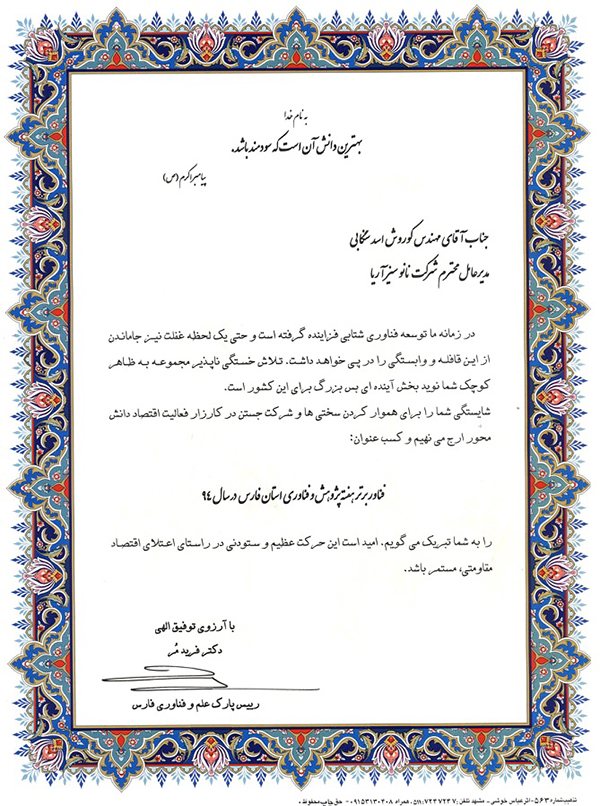 به نام خدا
بهترین دانش آن است که سودمند باشد.
پیامبر اکرم (ص)
جناب آقای مهندس کوروش اسد سنگابی
مدیرعامل محترم شرکت نانو سبز آریا
در زمانه ما توسعه فناوری شتابی فزاینده گرفته است و حتی یک لحظه غفلت نیز جاماندن
از این قافله و وابستگی را در پی خواهد داشت. تلاش خستگی ناپذیر مجموعه به ظاهر
کوچک شما نوید بخش آینده ای بس بزرگ برای این کشور است.
شایستگی شما را برای هموار کردن سختی ها و شرکت جستن در کارزار فعالیت اقتصاد دانش
محور ارج می نهیم و کسب عنوان:
فناور برتر هفته پژوهش و فناوری استان فارس در سال ۹۴
را به شما تبریک می گویم. امید است این حرکت عظیم و ستودنی در راستای اعتلای اقتصاد
مقاومتی، مستمر باشد.
با آرزوی توفیق الهی
دکتر فرید مُر
رییس پارک علم و فناوری فارس
شماره ۵۶۳ اثر عباس خوشی - مشهد تلفن: ۷۲۴۷۲۴۷-۵۱۱ همراه ۰۹۱۵۳۱۳۰۴۰۸ - حق چاپ محفوظ